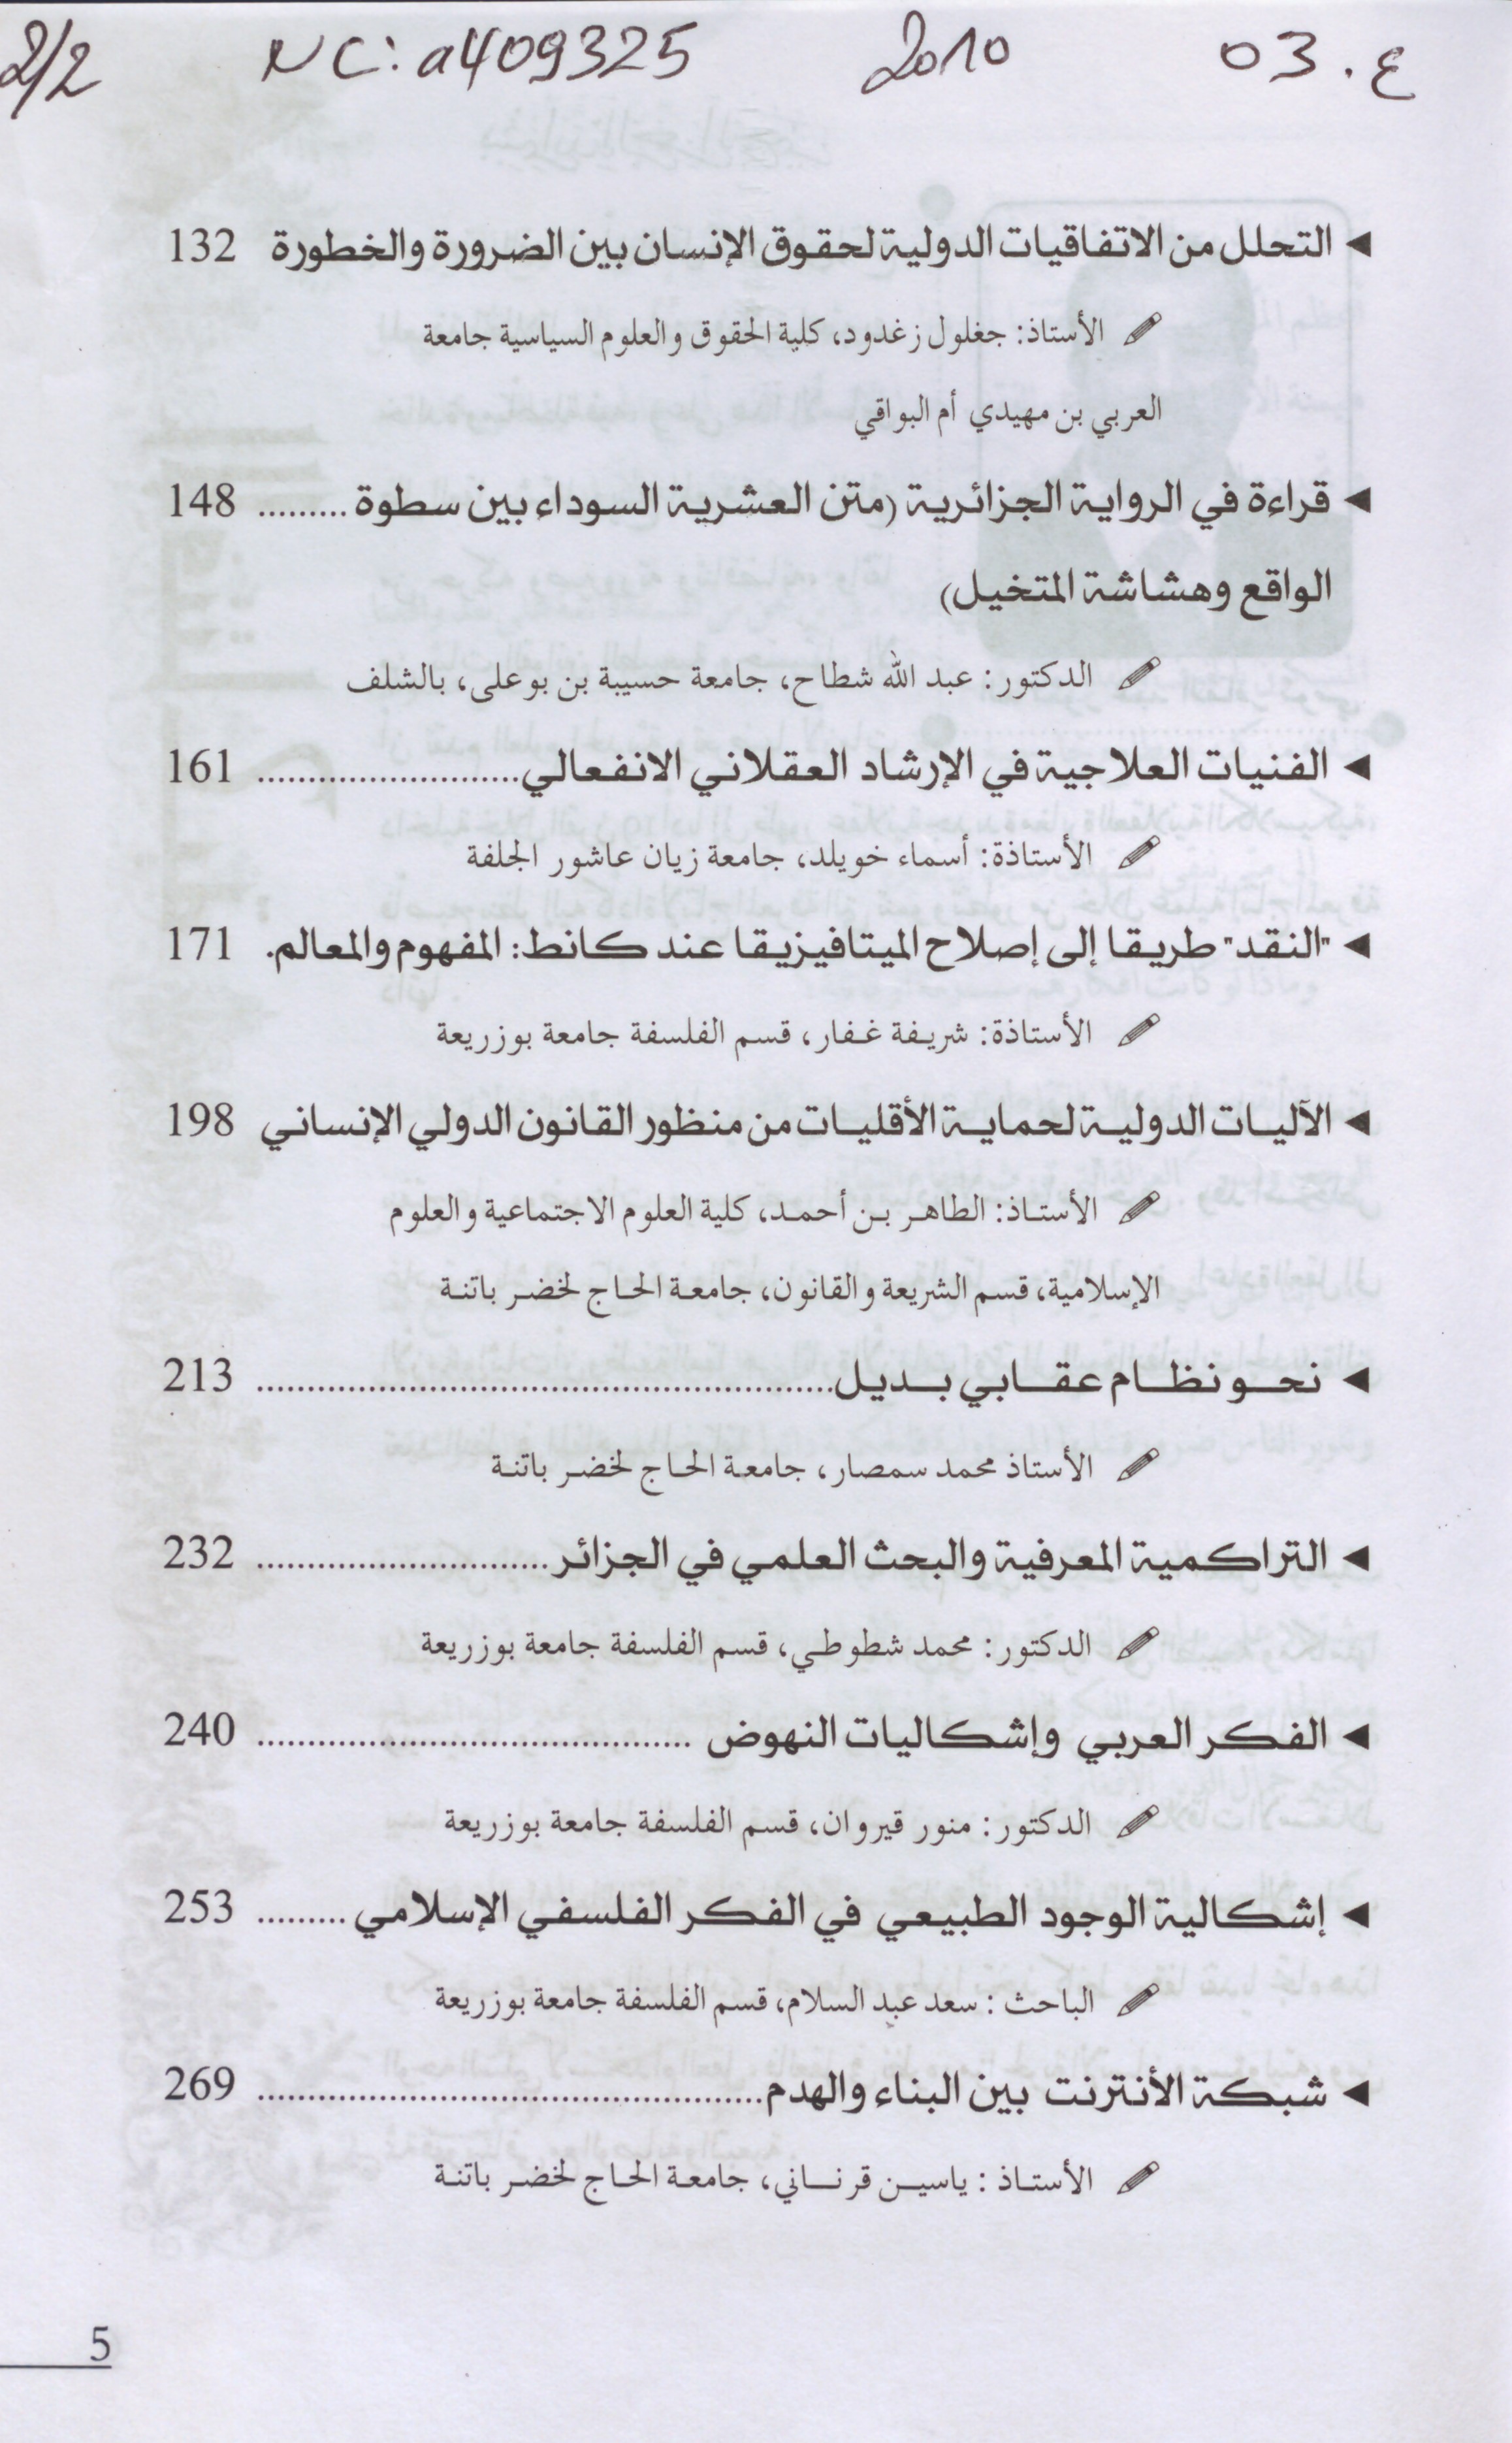 2/2 NC: a409325 2010 ع. 03
◄ التحلل من الاتفاقيات الدولية لحقوق الإنسان بين الضرورة والخطورة 132
الأستاذ: جغلول زغدود، كلية الحقوق والعلوم السياسية جامعة
العربي بن مهيدي أم البواقي
◄ قراءة في الرواية الجزائرية (متن العشرية السوداء بين سطوة ......... 148
الواقع وهشاشة المتخيل)
الدكتور: عبد الله شطاح، جامعة حسيبة بن بوعلى، بالشلف
◄ الفنيات العلاجية في الإرشاد العقلاني الانفعالي.......................... 161
الأستاذة: أسماء خويلد، جامعة زيان عاشور الجلفة
◄ "النقد" طريقا إلى إصلاح الميتافيزيقا عند كانط: المفهوم والمعالم. 171
الأستاذة: شريفة غفار، قسم الفلسفة جامعة بوزريعة
◄ الآليات الدولية لحماية الأقليات من منظور القانون الدولي الإنساني 198
الأستاذ: الطاهر بن أحمد، كلية العلوم الاجتماعية والعلوم
الإسلامية، قسم الشريعة والقانون، جامعة الحاج لخضر باتنة
◄ نحو نظام عقابي بديل......................................................... 213
الأستاذ محمد سمصار، جامعة الحاج لخضر باتنة
◄ التراكمية المعرفية والبحث العلمي في الجزائر............................. 232
الدكتور: محمد شطوطي، قسم الفلسفة جامعة بوزريعة
◄ الفكر العربي وإشكاليات النهوض ........................................... 240
الدكتور: منور قيروان، قسم الفلسفة جامعة بوزريعة
◄ إشكالية الوجود الطبيعي في الفكر الفلسفي الإسلامي ......... 253
الباحث : سعد عبد السلام، قسم الفلسفة جامعة بوزريعة
◄ شبكة الأنترنت بين البناء والهدم.................................................. 269
الأستاذ : ياسين قرناني، جامعة الحاج لخضر باتنة
5